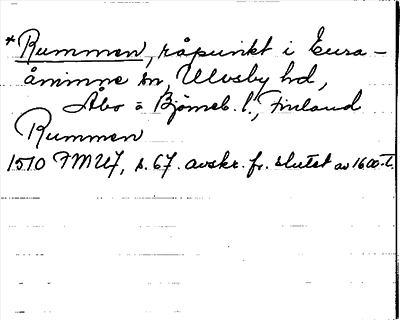 *Rummen, råpunkt i Eura-
åminne sn, Ulvsby hd,
Åbo o Björneb. l., Finland
Rummen
1510 FMU7, s. 67. avskr. fr. slutet av 1600-t.